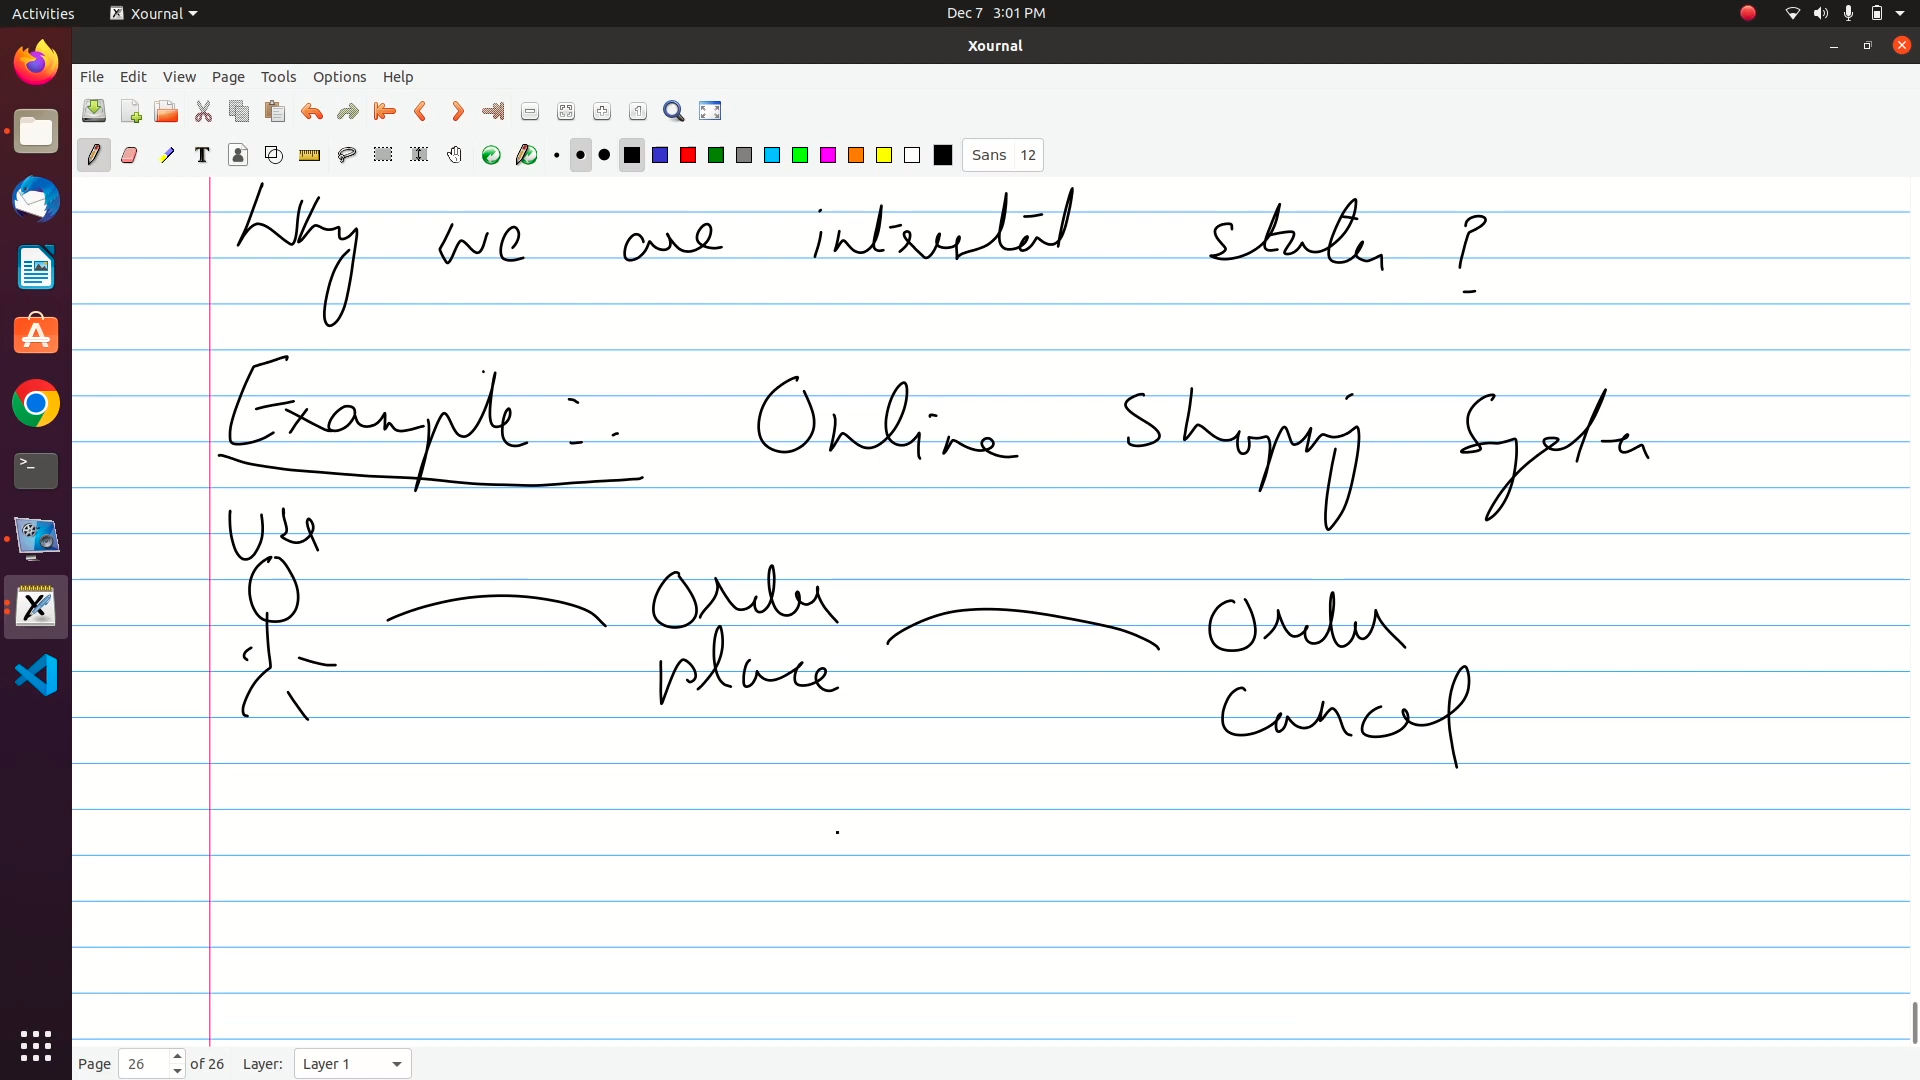 Activities Xournal Dec 7 3:01 PM
Xournal
File Edit View Page Tools Options Help
T Sans 12
Why we are interested states ?
Example :- Online Shopping System
User
Order Order
place Cancel
Page 26 of 26 Layer: Layer 1